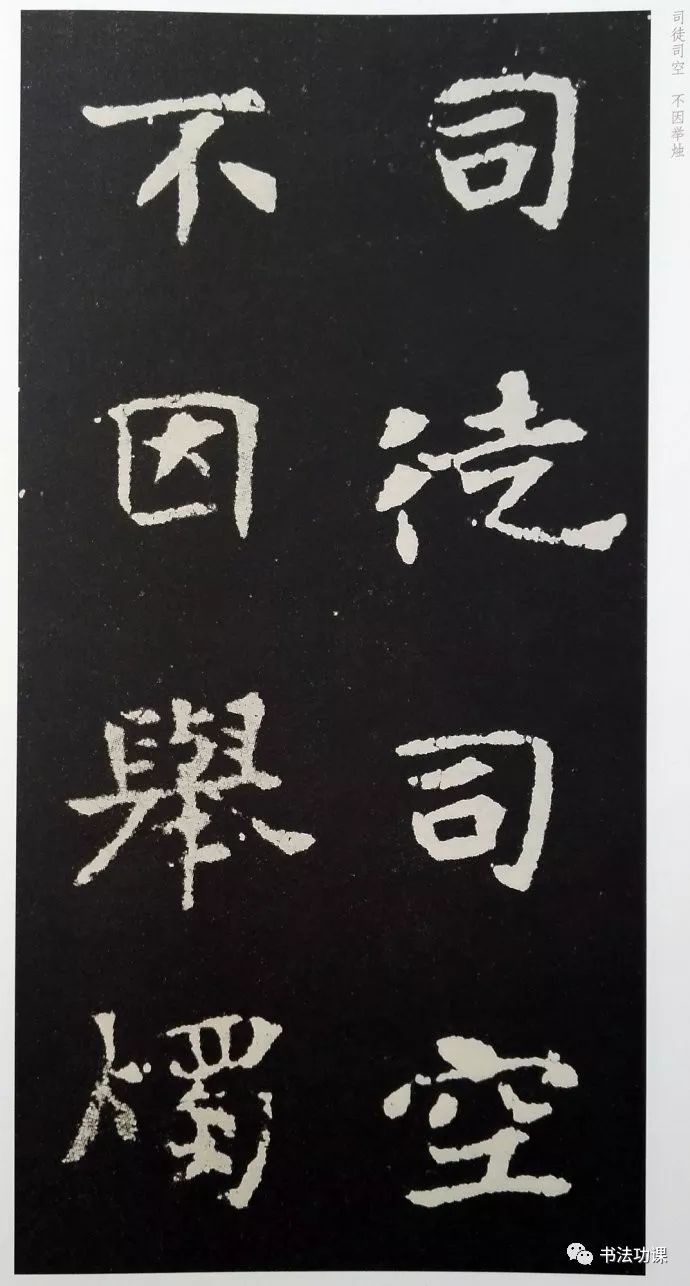 司徒司空
不因舉燭
司徒司空 不因举烛
书法功课